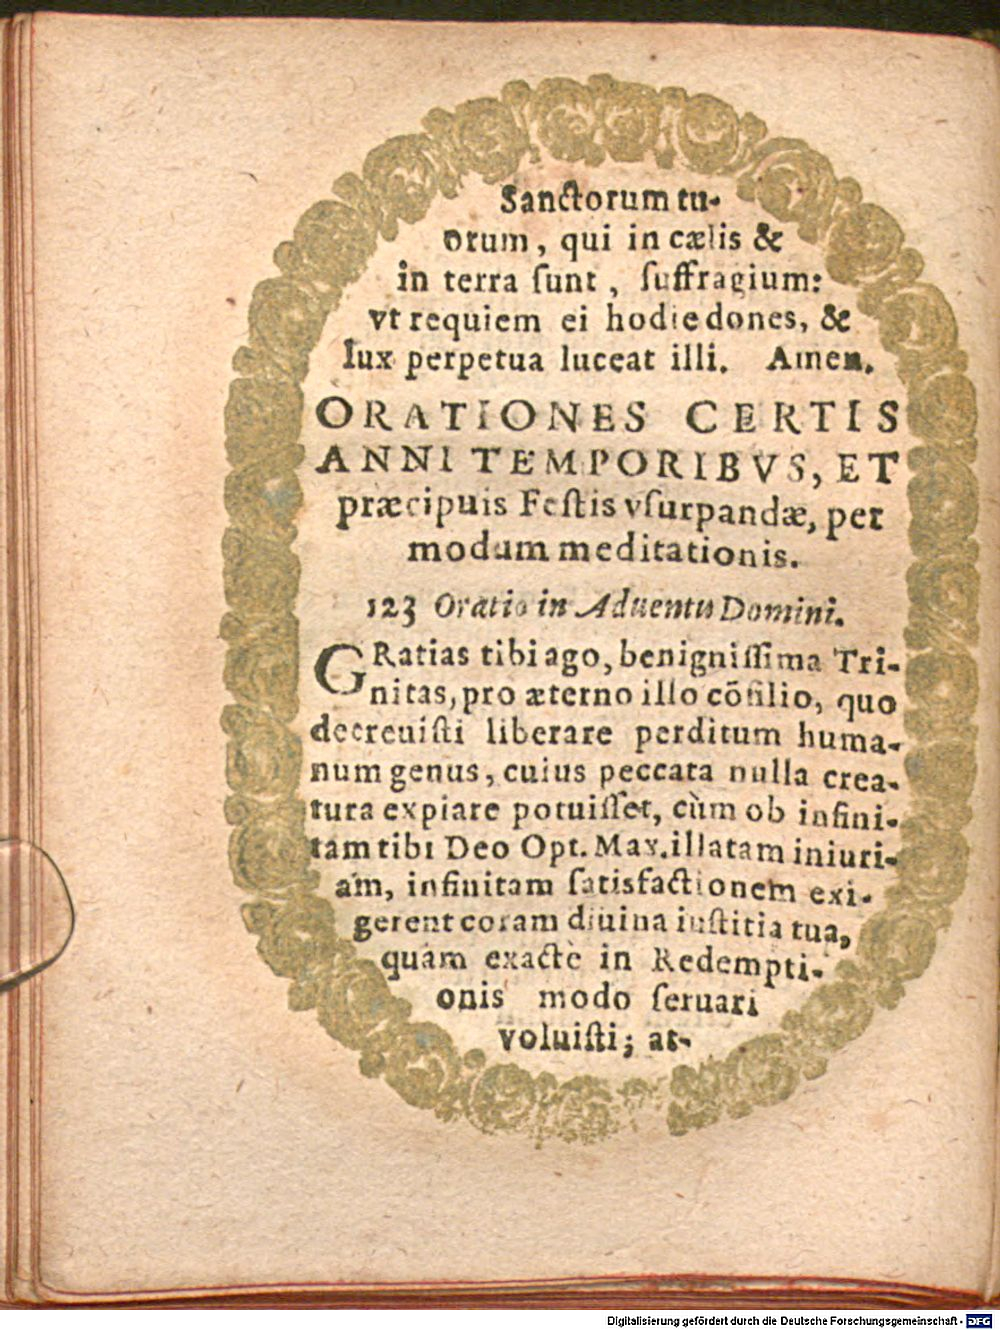 Sanctorum tu-
orum, qui in cælis &
in terra ſunt, ſuffragium:
vt requiem ei hodie dones, &
lux perpetua luceat illi. Amen.
ORATIONES CERTIS
ANNI TEMPORIBVS, ET
præcipuis Feſtis vſurpandæ, per
modum meditationis.
123 Oratio in Aduentu Domini.
GRatias tibi ago, benigniſſima Tri-
nitas, pro æterno illo cõſilio, quo
decreuiſti liberare perditum huma-
num genus, cuius peccata nulla crea-
tura expiare potuiſſet, cùm ob infini-
tam tibi Deo Opt. Max. illatam iniuri-
am, infinitam ſatisfactionem exi-
gerent coram diuina iuſtitia tua,
quàm exactè in Redempti-
onis modo ſeruari
voluiſti; at-
Digitalisierung gefördert durch die Deutsche Forschungsgemeinschaft - DFG